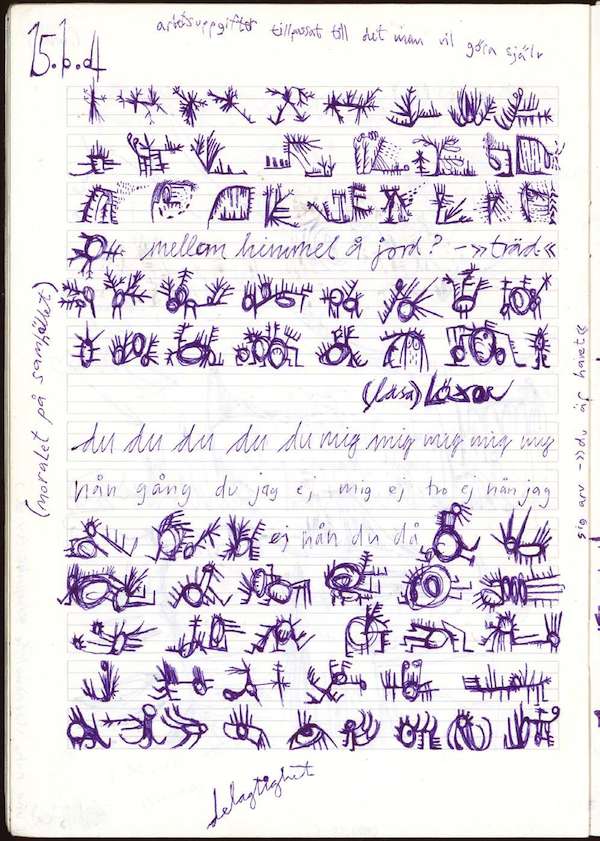 arbetsuppgifter tillpassat till det man vil göra själv
15.6.d
mellan himmel å jord? -»träd«
(moralet på samhället)
(läsa) Läsa
du du du du du mig mig mig mig mig
nån gång du jag ej mig ej tro ej nån jag
ej nån du då
sig arv -»du är havet«
delagtighet